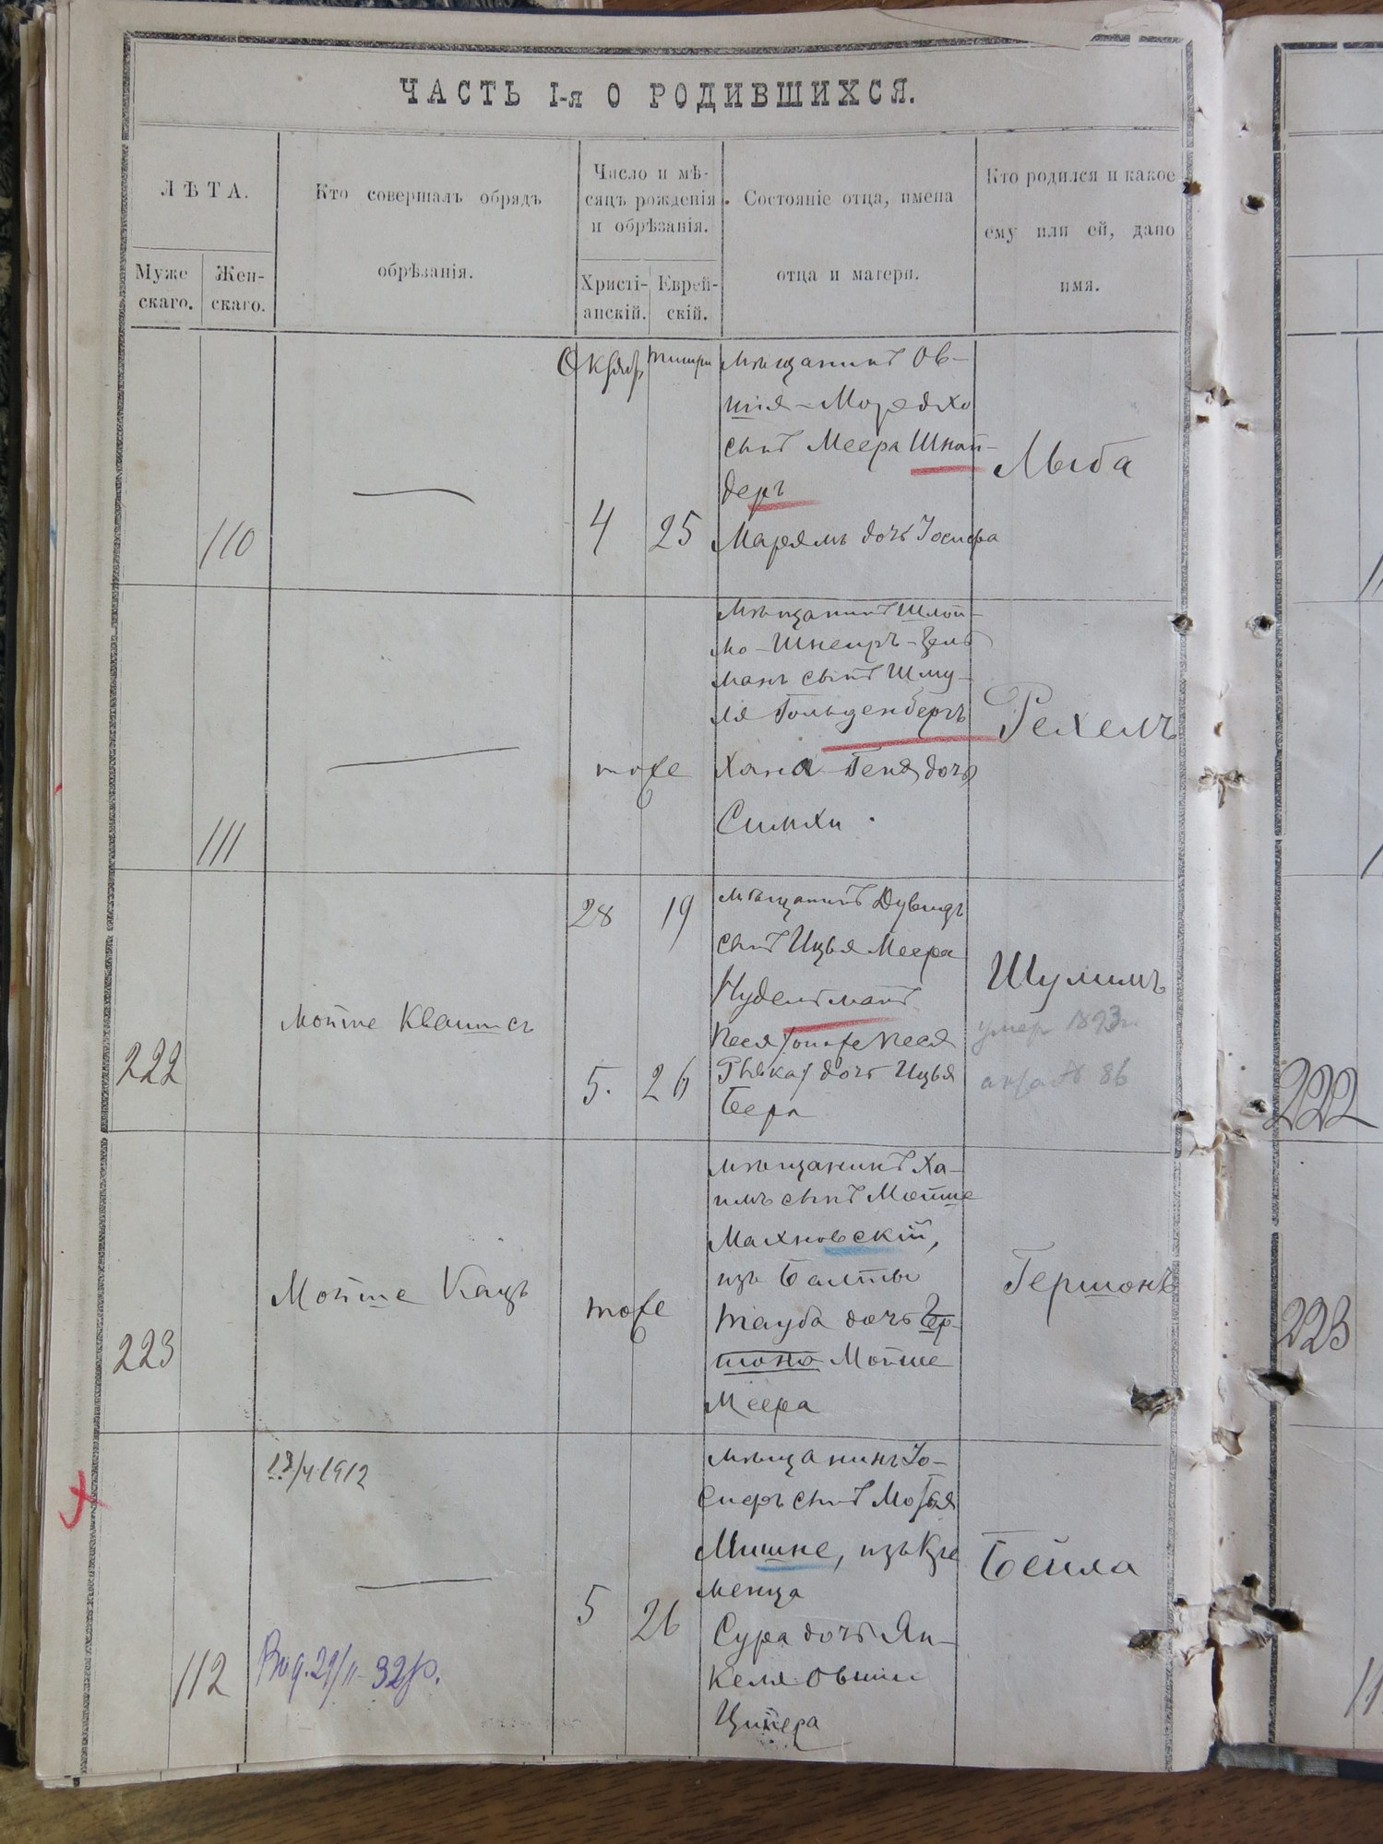 ЧАСТЬ I-я О РОДИВШИХСЯ.
ЛѢТА.
Муже
скаго.
Жен-
скаго.
Кто совершалъ обрядъ
обрѣзанія.
Число и мѣ-
сяцъ рожденія
и обрѣзанія.
Христі-
анскій.
Еврей-
скій.
Состояніе отца, имена
отца и матери.
Кто родился и какое
ему или ей, дано
имя.
110
Октяб
тишри
4
25
мѣщанинъ Ов-
шія-Мордхо
сынъ Меера Шнай-
деръ
Марямъ дочь Іосифа
Лыба
111
тоже
мѣщанинъ Шлой-
мо-Шнеиръ-Зель
манъ сынъ Шму-
ля Гольденбергъ
Хана Геня дочь
Симхи
Рехель
222
Мойше Квашъ
28
19
5.
26
мѣщанинъ Дувидъ
сынъ Ицья Меера
Нудельманъ
Песя /онаже Песя
Рывка/ дочь Ицья
Бера
Шулимъ
умер 1893г.
актъ № 86
222
223
Мойше Кацъ
тоже
мѣщанинъ Ха-
имъ сынъ Мойше
Махновскій,
изъ Балты
Тауба дочь Гер-
шона Мойше
Меера
Гершонъ
223
112
18/4 1912
Вид. 29/II-32р.
5
26
мѣщанинъ Іо-
сифъ сынъ Мотья
Мишне, изъ Кре
менца
Сура дочь Ян-
келя Овшии
Ципера
Бейла